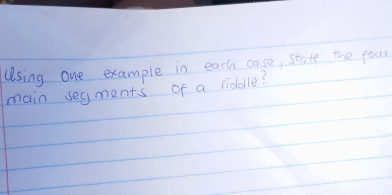 Using one example in each case, state the four
main segments of a riddle?